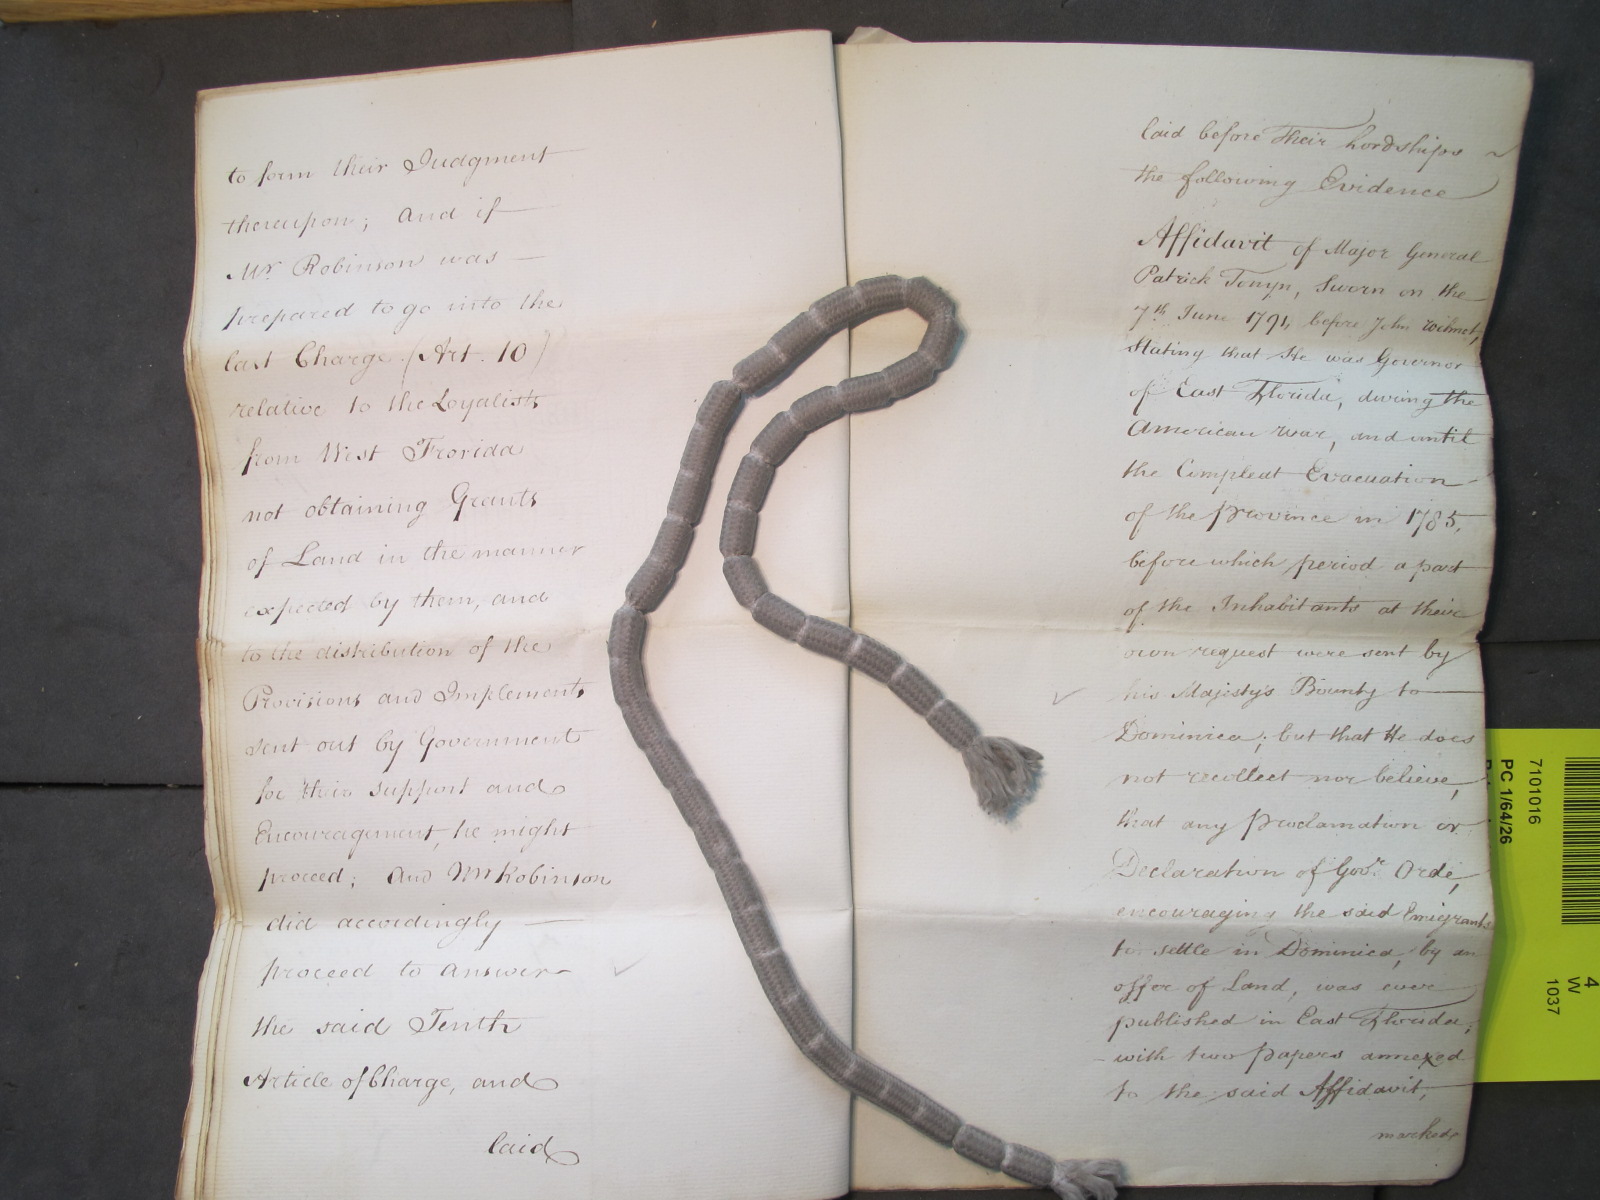 to form their Judgment
thereupon; And if
Mr. Robinson was
prepared to go into the
last Charge (Art. 10)
relative to the Loyalists
from West Florida
not obtaining Grants
of Land in the manner
expected by them, and
to the distribution of the
Provisions and Implements
sent out by Government
for their support and
Encouragement, he might
proceed; And Mr Robinson
did accordingly
proceed to answer
the said Tenth
Article of Charge, and
laid
laid before Their Lordships
the following Evidence
Affidavit of Major General
Patrick Tonyn, Sworn on the
7th June 1791, before John Wilmot,
Stating that He was Governor
of East Florida, during the
American War, and until
the Compleat Evacuation
of the Province in 1785,
before which period a part
of the Inhabitants at their
own request were sent by
his Majesty's Bounty to
Dominica; but that He does
not recollect nor believe,
that any Proclamation or
Declaration of Govr. Orde,
encouraging the said Emigrants
to settle in Dominica, by an
offer of Land, was ever
published in East Florida;
with two papers annexed
to the said Affidavit,
marked
7101016
PC 1/64/26
4
W
1037